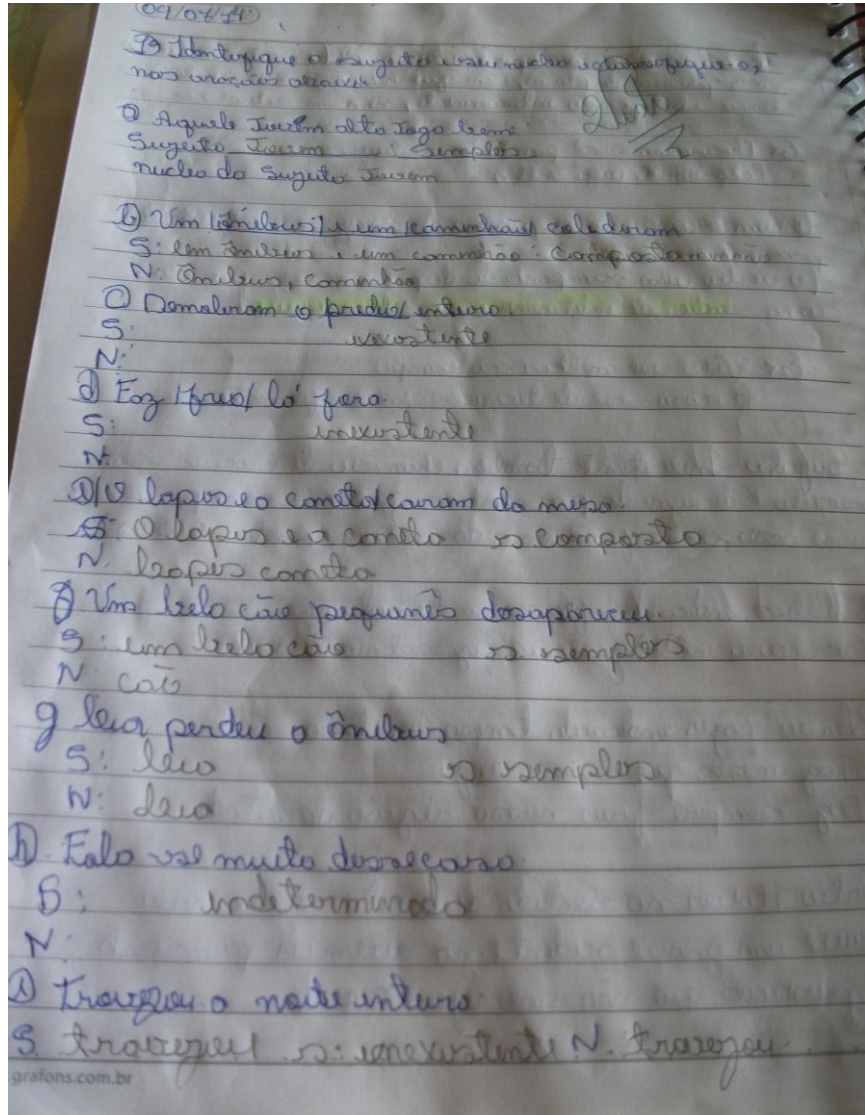 09/07/14
1) Identifique o sugeito e seu nucleo e classifique-o,
nas orações abaixo.
a) Aquele Jovem alto Joga bem.
Sugeito Jovem s: Simples
nucleo do Sugeito Jovem
b) Um /ônibus/ e um /caminhão/ colidiram
S: um ônibus e um caminhão: Composto
N: Ônibus, caminhão
c) Demoliram o predio/ inteiro.
S: inexistente
N:
d) Faz /frio/ lá fora.
S: inexistente
N:
e)/O lapis e a caneta/ cairam da mesa.
S: O lapis e a caneta s composto
N. Lapis caneta
f) Um belo cão pequinês desapareceu.
S: um belo cão s. simples
N: cão
g Leia perdeu o ônibus.
S: leia s. simples
N: Leia
h). Fala-se muito desse caso.
S: indeterminado
N:
i) trovejou a noite inteira.
S trovejou s: inexistente N. trovejou.
grafons.com.br